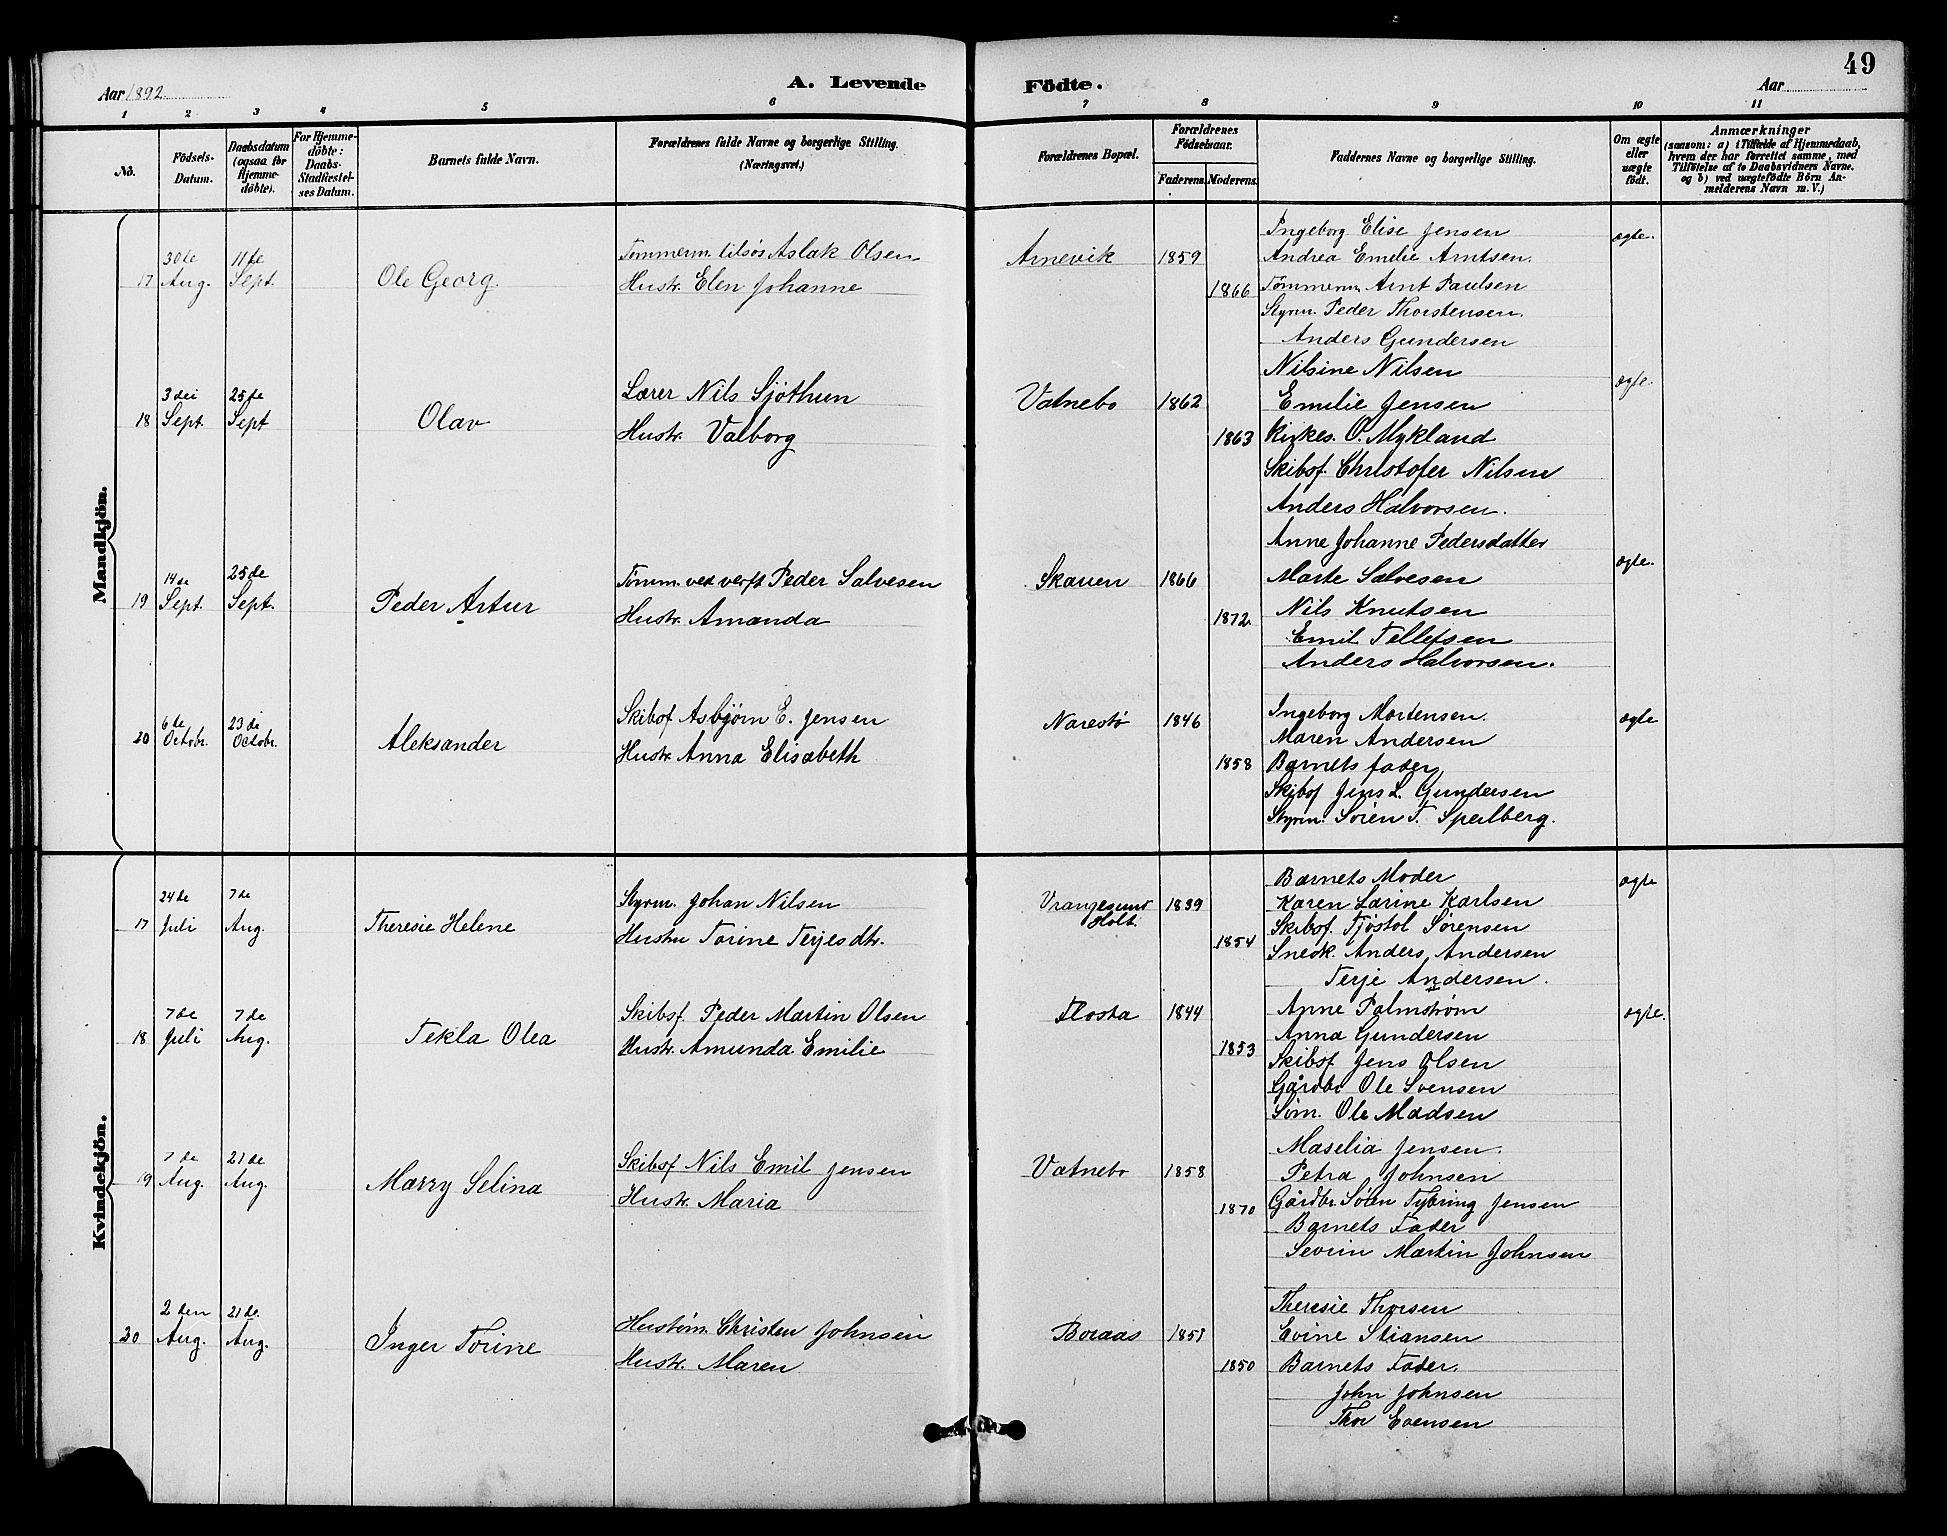 49
Aar 1892.
A. Levende Födte.
Aar
1 2 3 4 5 6 7 8 9 10 11
No.
Födsels-Datum.
Daabsdatum (ogsaa for Hjemme-döbte).
For Hjemme-döbte: Daabs-Stadfæstel-ses Datum.
Barnets fulde Navn.
Forældrenes fulde Navne og borgerlige Stilling.
(Næringsvei.)
Forældrenes Bopæl.
Forældrenes Födselsaar.
Faderens. Moderens.
Faddernes Navne og borgerlige Stilling.
Om ægte eller uægte födt.
Anmærkninger
(saasom: a) i Tilfælde af Hjemmedaab,
hvem der har forrettet samme, med
Tilföielse af to Daabsvidners Navne.
og b) ved uægtefödte Börn An-
melderens Navn m. V.)
Mandkjön.
17 30te Aug. 11te Sept. Ole Georg.
Tømmerm. tilsøs Aslak Olsen
Hustr. Elen Johanne
Arnevik 1859 1866
Ingeborg Elise Jensen
Andrea Emelie Arntsen.
Tømmerm. Arnt Paulsen
Styrm. Peder Thorstensen.
Anders Gundersen
ægte.
18 3dei Sept. 25de Sept Olav
Lærer Nils Sjöthun
Hustr. Valborg
Vatnebo 1862 1863
Nilsine Nilsen
Emilie Jensen
Kirkes. O. Mykland
Skibsf. Christofer Nilsen
Anders Halvorsen.
ægte.
19 14de Sept. 25de Sept. Peder Artur
Tömm. ved verft Peder Salvesen
Hustr. Amanda
Skaven 1866 1872
Anne Johanne Pedersdatter
Marte Salvesen
Nils Knutsen
Emil Tellefsen
Anders Halvorsen.
ægte.
20 6te Octobr. 23di Octobr. Aleksander
Skibsf Asbjørn E. Jensen
Hustr. Anna Elisabeth
Narestö 1846 1858
Ingeborg Mortensen.
Maren Andersen
Barnets fader
Skibsf Jens L. Gundersen
Styrm. Sören T. Speilberg.
ægte
Kvindekjön.
17 24de Juli 7de Aug. Theresie Helene
Styrm. Johan Nilsen
Hustru Torine Terjesdtr.
Vrangesund Holt. 1839 1854
Barnets Moder
Karen Larine Karlsen
Skibsf. Tjöstol Sørensen
Snedk. Anders Andersen
Terje Andersen.
ægte
18 7de Juli 7de Aug. Tekla Olea
Skibsf. Peder Martin Olsen
Hustr. Amunda Emilie
Flosta 1844 1853
Anne Palmstrøm
Anna Gundersen
Skibsf Jens Olsen
Gårdbr Ole Svensen
Söm. Ole Madsen
ægte.
19 7de Aug. 21de Aug. Marry Selina
Skibsf Nils Emil Jensen
Hustr. Maria
Vatnebo 1858 1870
Maselia Jensen.
Petra Johnsen
Gårdbr. Sören Tybring Jensen
Barnets Fader
Severin Martin Johnsen
20 2den Aug. 21de. Aug. Inger Torine
Hustöm. Christen Johnsen
Hustr. Maren
Boraas 1851 1850
Theresie Thorsen
Evine Stiansen
Barnets Fader.
John Johnsen
Thor Evensen